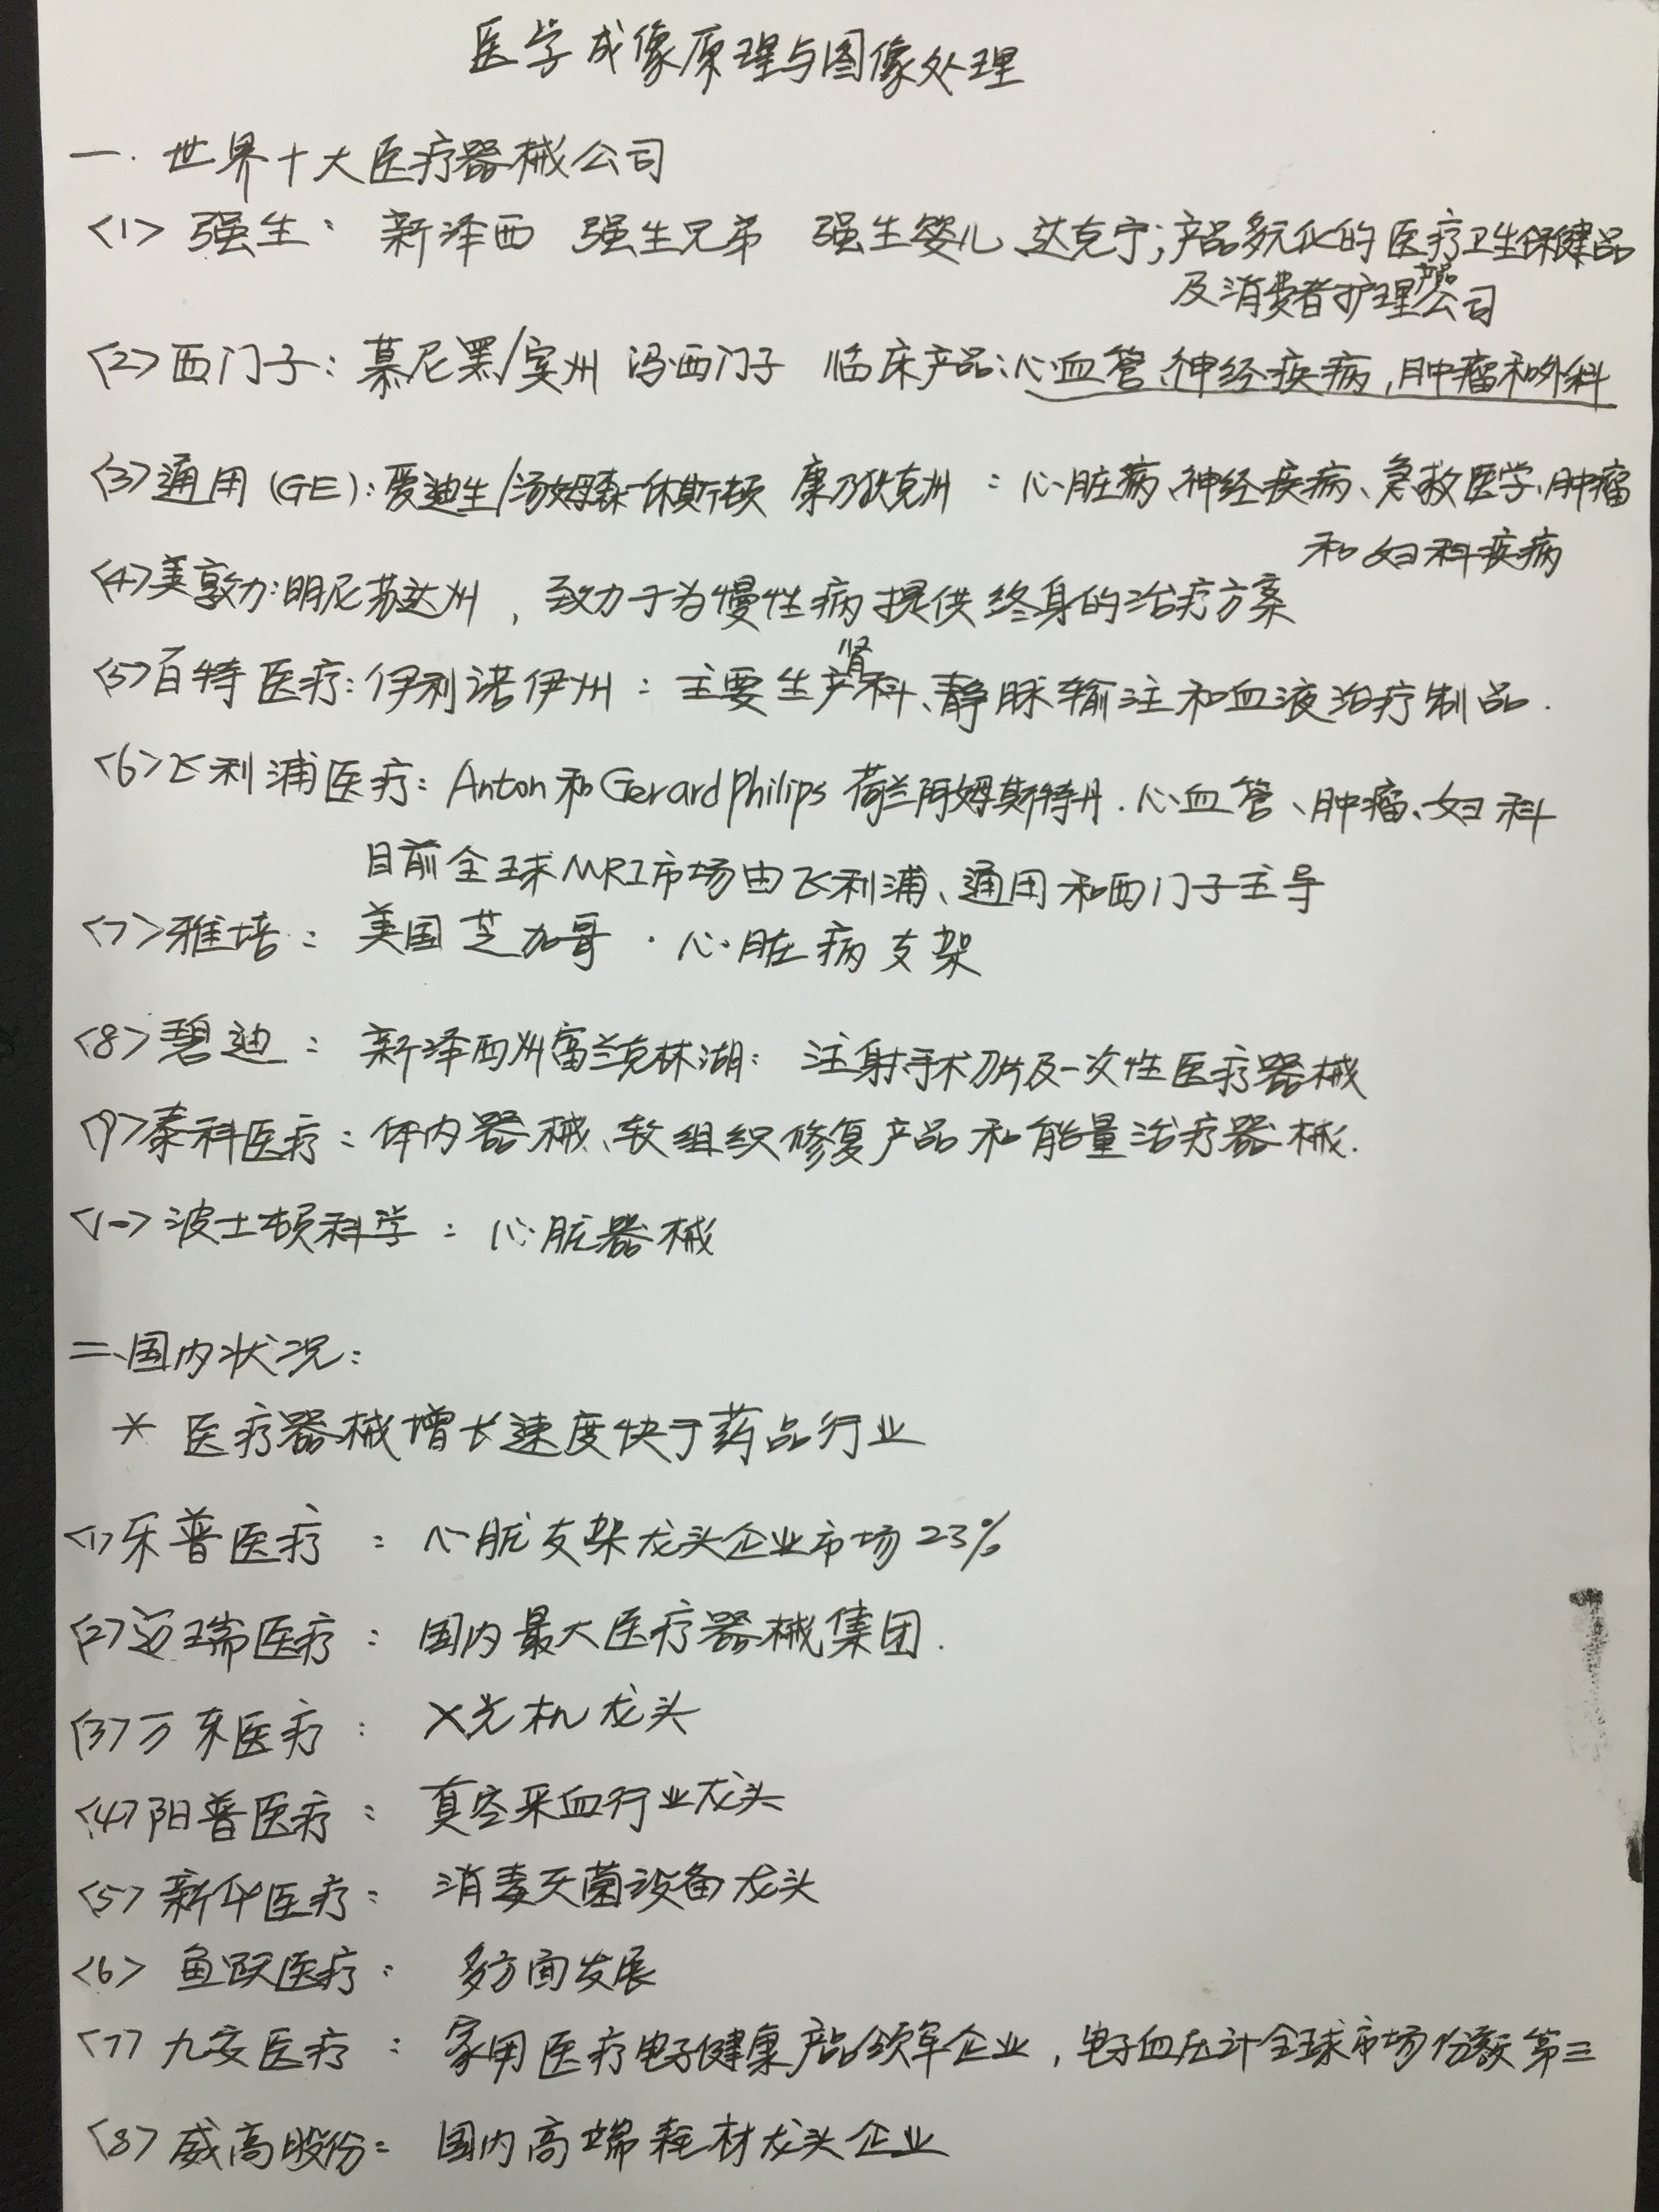 医学成像原理与图像处理
一.世界十大医疗器械公司
<1>强生：新泽西 强生兄弟 强生婴儿、达克宁；产品多元化的医疗卫生保健品
及消费者护理产品公司
<2>西门子：慕尼黑/宾州 冯·西门子 临床产品：心血管、神经疾病，肿瘤和外科
<3>通用(GE)：爱迪生/汤姆森-休斯顿 康乃狄克州：心脏病、神经疾病、急救医学、肿瘤
和妇科疾病
<4>美敦力：明尼苏达州，致力于为慢性病提供终身的治疗方案
<5>百特医疗：伊利诺伊州：主要生产肾科、静脉输注和血液治疗制品.
<6>飞利浦医疗：Anton和Gerard Philips 荷兰阿姆斯特丹.心血管、肿瘤、妇科
目前全球MRI市场由飞利浦、通用和西门子主导
<7>雅培：美国芝加哥·心脏病支架
<8>碧迪：新泽西州富兰克林湖：注射手术刀片及一次性医疗器械
<9>泰科医疗：体内器械、软组织修复产品和能量治疗器械.
<10>波士顿科学：心脏器械
二、国内状况：
* 医疗器械增长速度快于药品行业
<1>乐普医疗：心脏支架龙头企业市场23%
<2>迈瑞医疗：国内最大医疗器械集团.
<3>万东医疗：X光机龙头
<4>阳普医疗：真空采血行业龙头
<5>新华医疗：消毒灭菌设备龙头
<6>鱼跃医疗：多方面发展
<7>九安医疗：家用医疗电子健康产品领军企业，电子血压计全球市场份额第三
<8>威高股份：国内高端耗材龙头企业